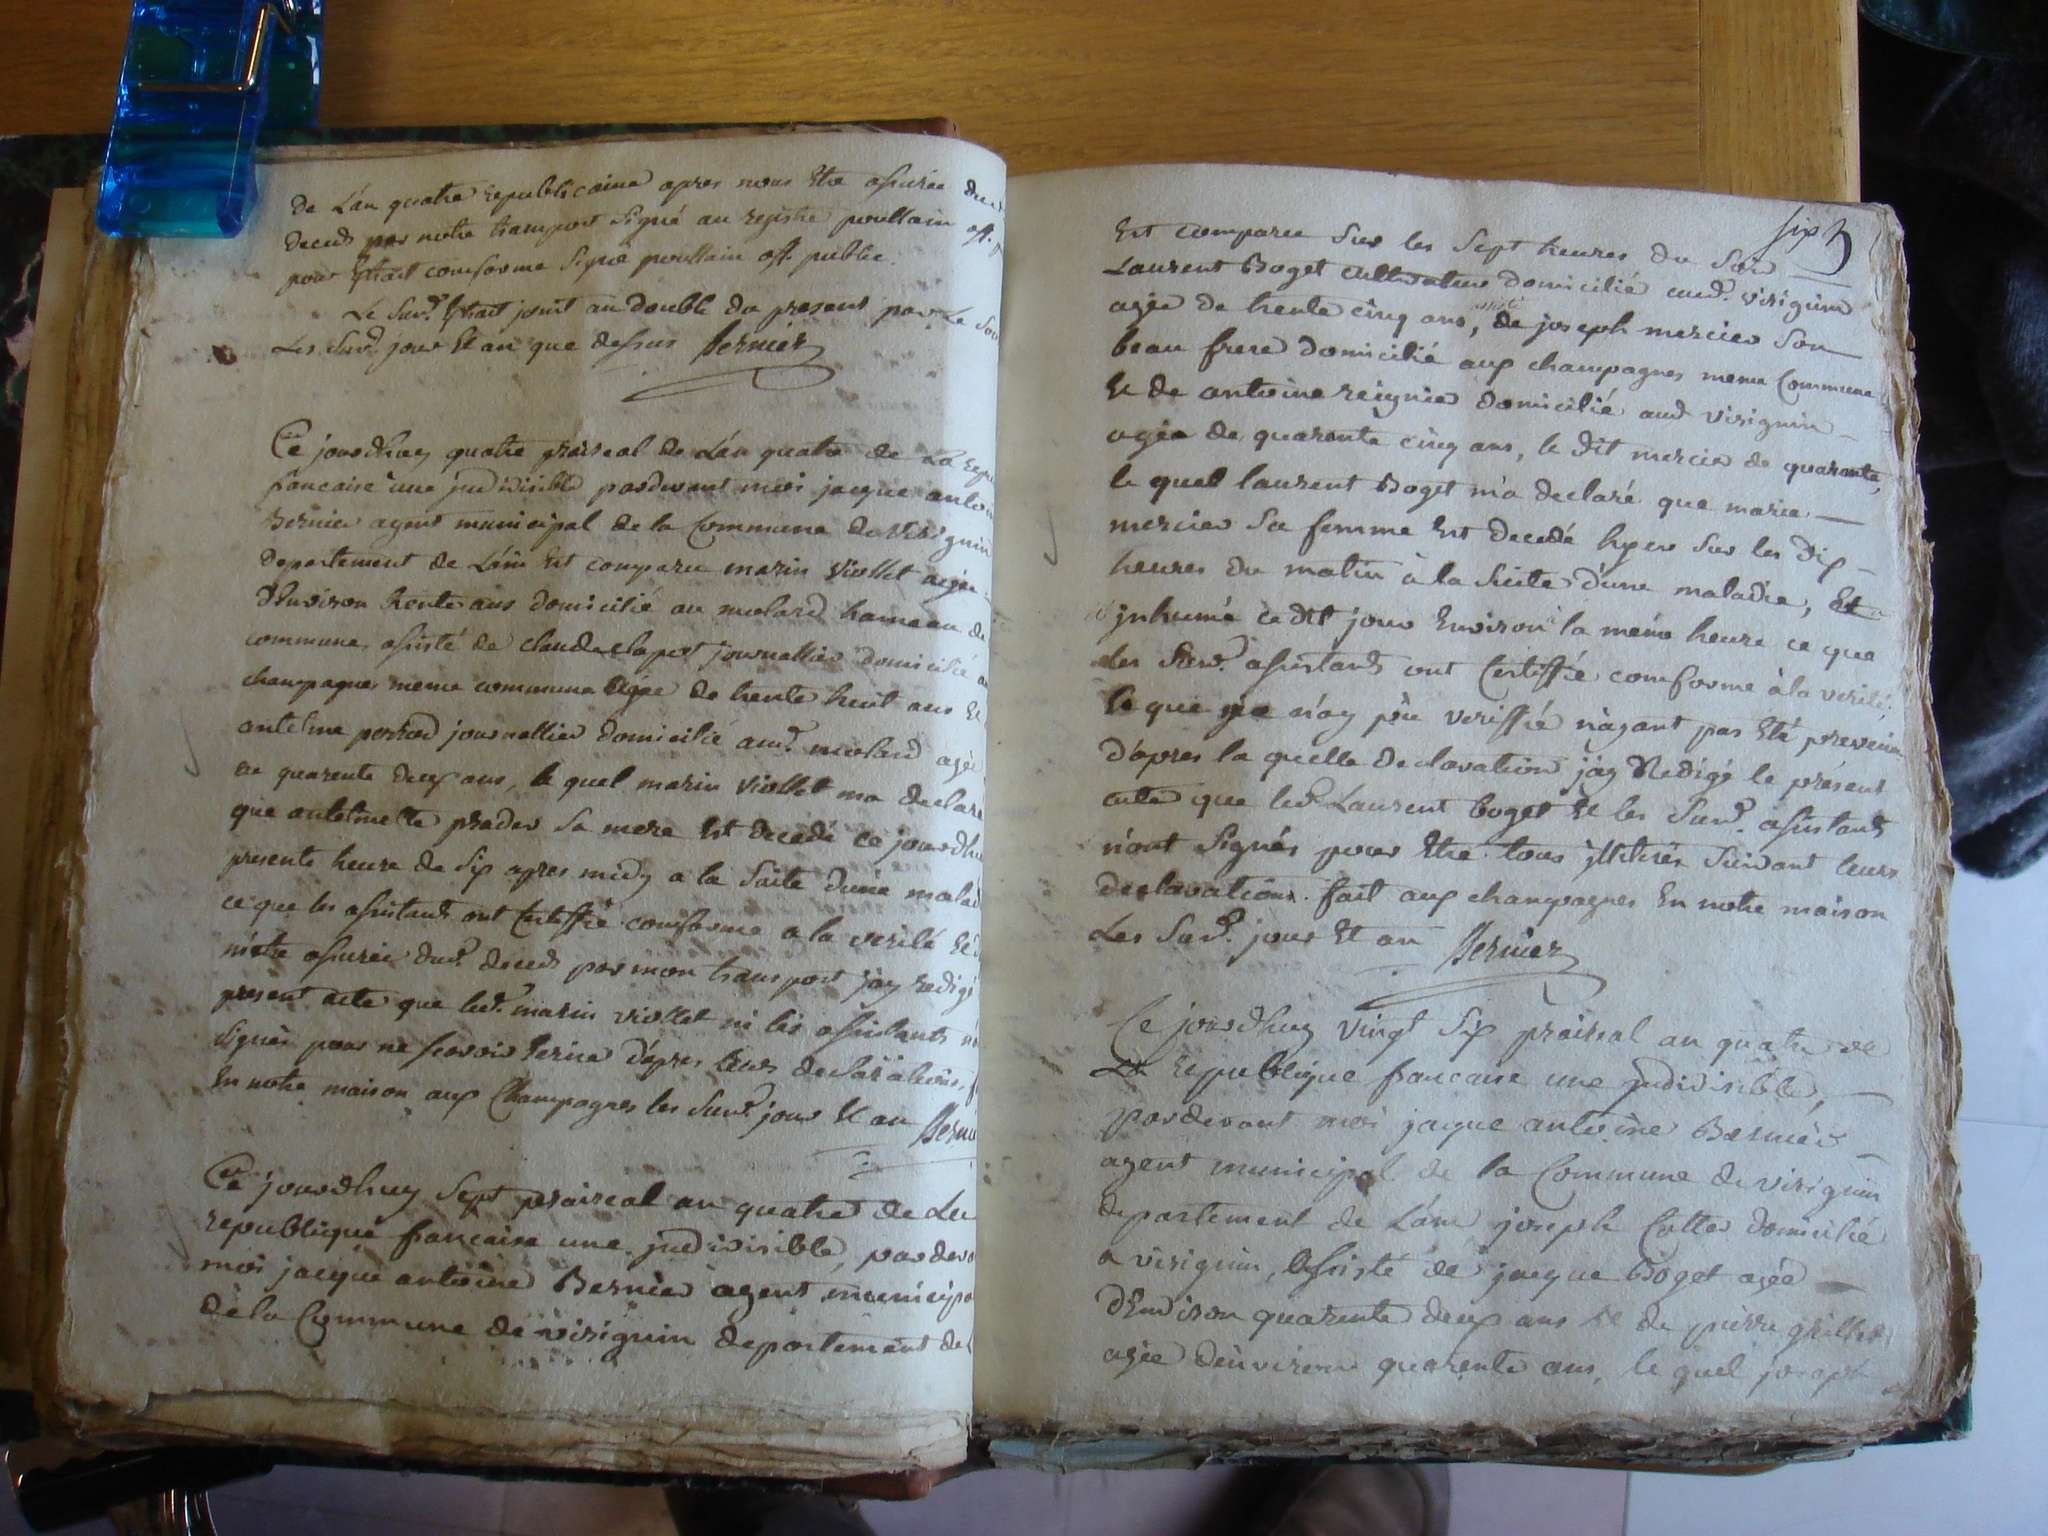 de L'an quatre republicaine apres nous Etre assurée du
deceds par notre transport signé au registre poullain off.
pour Extrait conforme signé poullain off. public.
Le Surd. Extrait joint au double du present par Le
Les Surd. jour Et an que dessus Bernier
Ce jourdhuy quatre praireal de L'an quatre de La repu
francaise une jndivisible pardevant moi jacque antoi
Bernier agent municipal de la Commune de Virignin
departement de L'ain Est comparu marin Viollet agée
d'Environ trente ans domicilié au molard hameau de
commune, assisté de claude clapot journallier domicilié
champagnes meme commune agée de trente huit ans Et
antelme perrod journallier domicilié aud. molard agée
de quarente deux ans, le quel marin Viollet ma declare
que antelmette prader sa mere Est decedé ce jourdhu
presente heure de six apres midy a la suite d'une malad
ce que les assistants ont Certiffié conforme a la verité Et
m'etre assurée dud. deceds par mon transport j'ay redigé
present acte que led. marin viollet ni les assistants n
signés pour ne scavoir Ecrire d'apres leurs declarations,
En notre maison aux Champagnes les Surd. jour Et an Berni
Ce jourdhuy Sept praireal an quatre de La
republique francaise une jndivisible, pardeva
moi jacque antoine Bernier agent municipa
de la Commune de virignin departement de
six
Est comparu Sur les Sept heures du Soir
Laurent Boget cultivateur domicilié aud. virignin
agée de trente cinq ans, assisté de joseph mercier Son
beau frere domicilié aux champagnes meme Commune
Et de antoine reignier domicilié aud Virignin
agée de quarente cinq ans, le dit mercier de quarante,
le quel laurent Boget m'a declaré que marie
mercier Sa femme Est decedé hyer Sur les dix
heures du matin à la Suite d'une maladie, Et
jnhumé ce dit jour Environ la même heure ce que
les Surd. assistants ont Certiffié conforme à la verité,
Ce que je n'ay pûe veriffié n'ayant pas Eté prevenu
d'apres la quelle declaration j'ay Redigé le présent
acte que led. Laurent boget Et les Surd. assistants
n'ont Signés pour Etre tous jlliterés Suivant leurs
declarations. fait aux champagnes En notre maison
Les Surd. jour Et an Bernier
Ce jourdhuy Vingt Six prairéal an quatre de
La republique francaise une jndivisible,
pardevant moi jacque antoine Bernier
agent municipal de la Commune de virignin
departement de L'ain joseph Cotter domicilié
a virignin, assisté de jacque Boget agée
d'Environ quarente deux ans Et de pierre grillet
agée d'environ quarente ans, le quel joseph